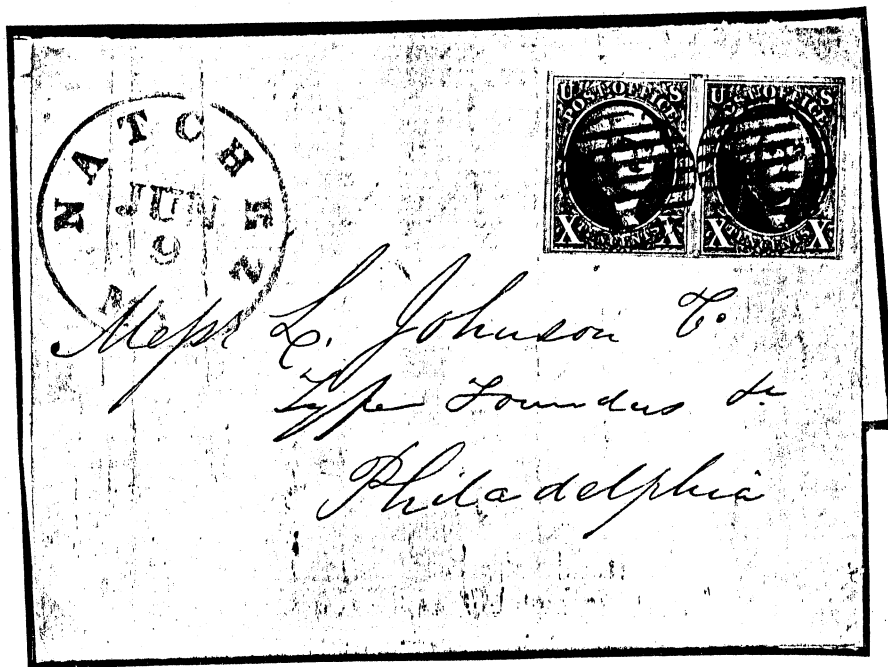 NATCHEZ
JUN
9
U.S. POST OFFICE
X TEN CENTS X
POST OFFICE
X TEN CENTS X
Messrs L. Johnson Co
Type Founders &c
Philadelphia